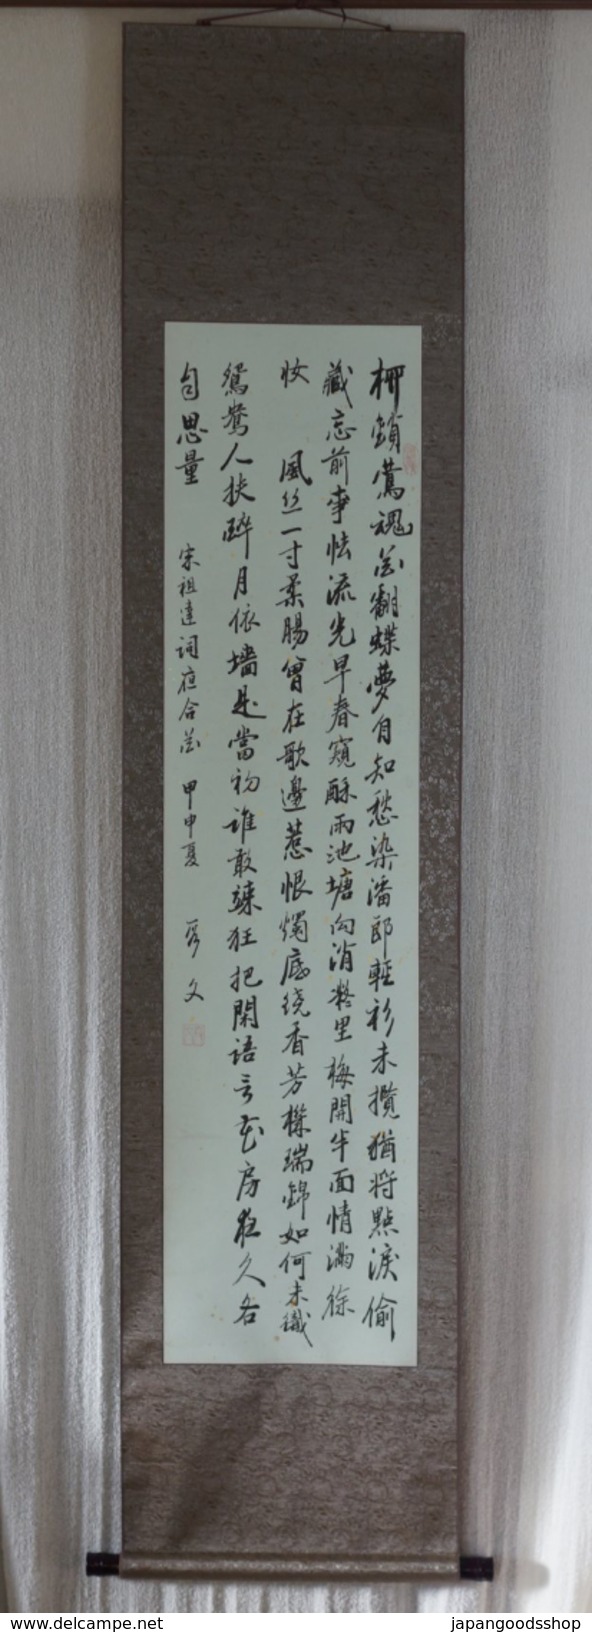 柳鎖鶯魂花翻蝶夢自知愁染潘郎輕衫未攬猶將點淚偷
藏忘前事怯流光早春窺酥雨池塘向消凝里梅開半面情滿徐
妝 風丝一寸柔腸曾在歌邊惹恨燭底绕香芳機瑞錦如何未織
鴛鴦人扶醉月依墻是當初誰敢疎狂把閑語言花房夜久各
自思量 宋祖達詞夜合花 甲申夏 文
delcampe.net
japangoodsshop